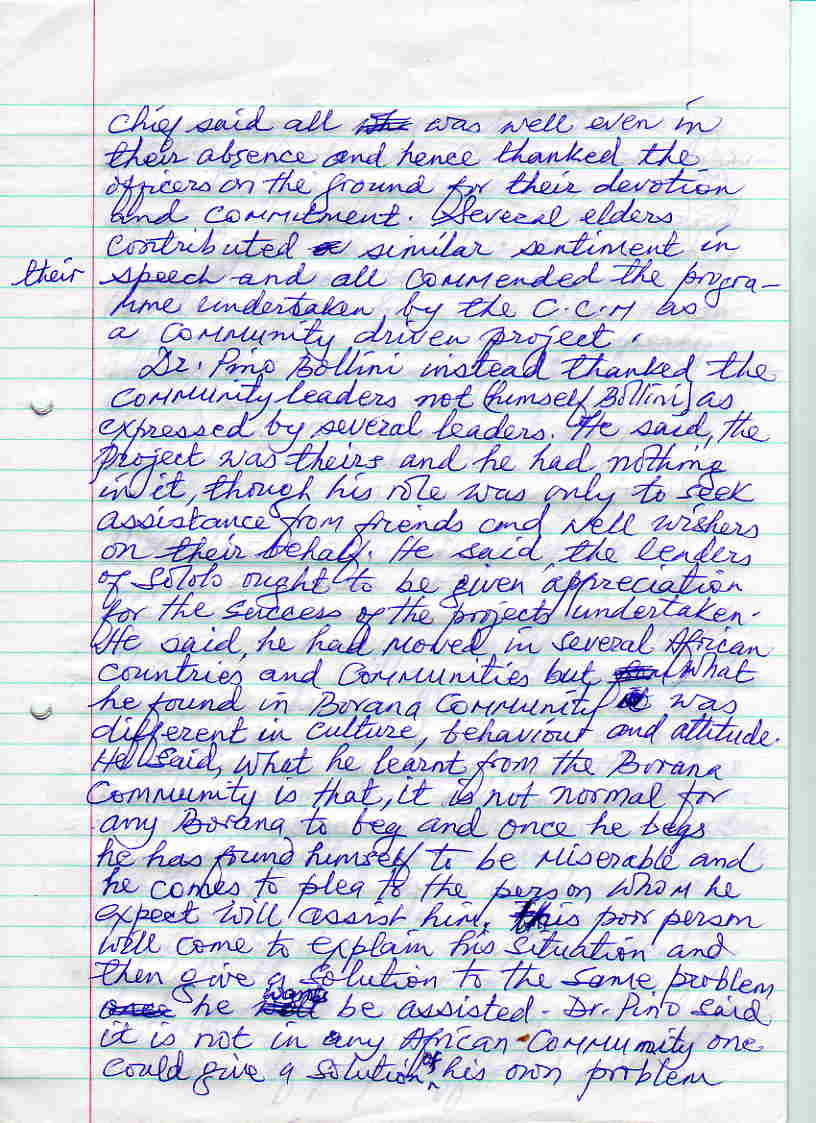 Chief said all was well even in
their absence and hence thanked the
officers on the ground for their devotion
and commitment. Several elders
contributed similar sentiment in
their speech and all commended the progra-
mme undertaken by the C.C.M as
a community driven project.
Dr. Pino Bollini instead thanked the
community leaders not (himself Bollini) as
expressed by several leaders. He said, the
project was theirs and he had nothing
in it, though his role was only to seek
assistance from friends and well wishers
on their behalf. He said, the leaders
of Sololo ought to be given appreciation
for the success of the projects undertaken.
He said, he had moved in several African
countries and communities but what
he found in Borana Community was
different in culture, behaviour and attitude.
He said, what he learnt from the Borana
Community is that, it is not normal for
any Borana to beg and once he begs
he has found himself to be miserable and
he comes to plea to the person whom he
expect will assist him. this poor person
will come to explain his situation and
then give a solution to the same problem
he wants be assisted. Dr. Pino said
it is not in any African Community one
could give a solution of his own problem